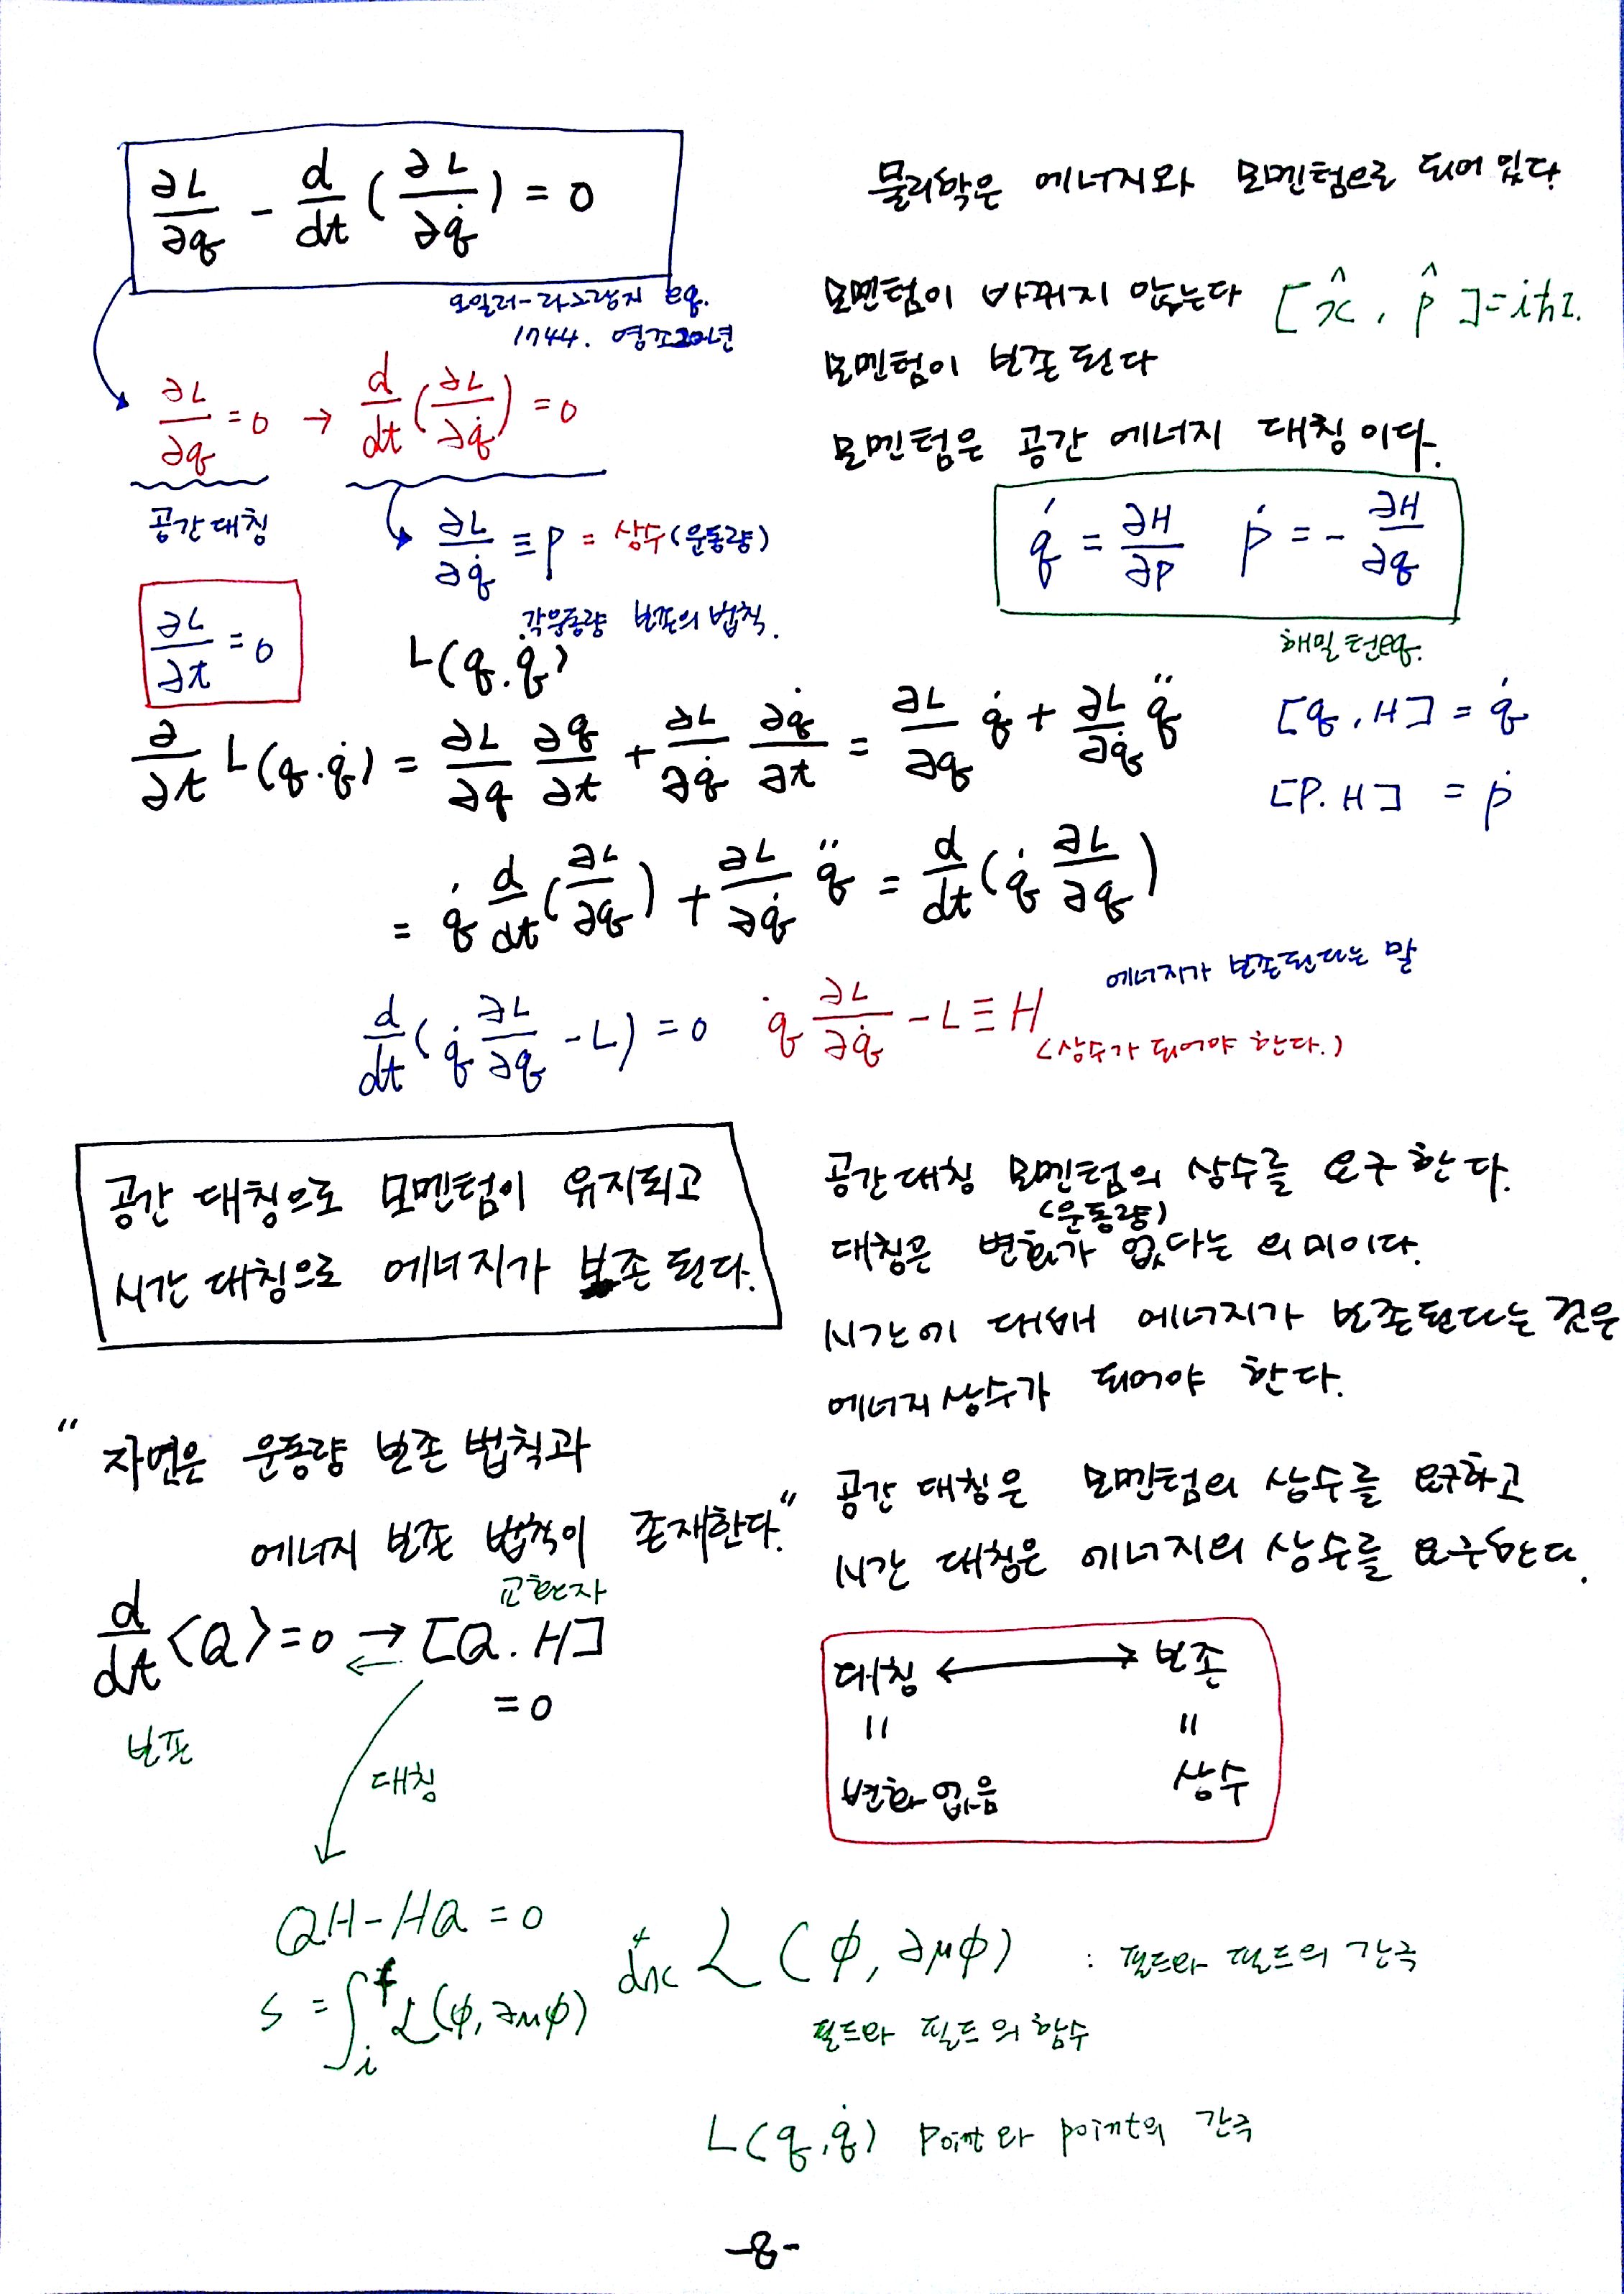 ∂L/∂q - d/dt(∂L/∂q̇) = 0
오일러-라그랑지 eq.
1744. 영조20년
∂L/∂q = 0 → d/dt(∂L/∂q̇) = 0
공간대칭
∂L/∂q̇ ≡ p = 상수(운동량)
각운동량 보존의 법칙.
물리학은 에너지와 모멘텀으로 되어 있다.
모멘텀이 바뀌지 않는다 [x̂, p̂] = iħI.
모멘텀이 보존된다
모멘텀은 공간 에너지 대칭이다.
q̇ = ∂H/∂p ṗ = - ∂H/∂q
해밀턴eq.
[q, H] = q̇
[P. H] = ṗ
∂L/∂t = 0
L(q.q̇)
∂/∂t L(q.q̇) = ∂L/∂q ∂q/∂t + ∂L/∂q̇ ∂q̇/∂t = ∂L/∂q q̇ + ∂L/∂q̇ q̈
= q̇ d/dt(∂L/∂q) + ∂L/∂q̇ q̈ = d/dt(q̇ ∂L/∂q)
에너지가 보존된다는 말
d/dt(q̇ ∂L/∂q - L) = 0 q̇ ∂L/∂q̇ - L ≡ H
(상수가 되어야 한다.)
공간 대칭으로 모멘텀이 유지되고
시간 대칭으로 에너지가 보존된다.
공간대칭 모멘텀의 상수를 요구한다.
(운동량)
대칭은 변화가 없다는 의미이다.
시간에 대해 에너지가 보존된다는 것은
에너지상수가 되어야 한다.
"자연은 운동량 보존 법칙과
에너지 보존 법칙이 존재한다."
공간 대칭은 모멘텀의 상수를 요구하고
시간 대칭은 에너지의 상수를 요구한다.
교환자
d/dt<Q> = 0 ⇄ [Q. H]
= 0
보존
대칭
대칭 ↔ 보존
" "
변화없음 상수
QH - HQ = 0
S = ∫ᵢᶠ ℒ(φ, ∂μφ) d⁴x ℒ(φ, ∂μφ) : 필드와 필드의 간극
필드와 필드의 함수
L(q, q̇) Point와 point의 간극
-8-